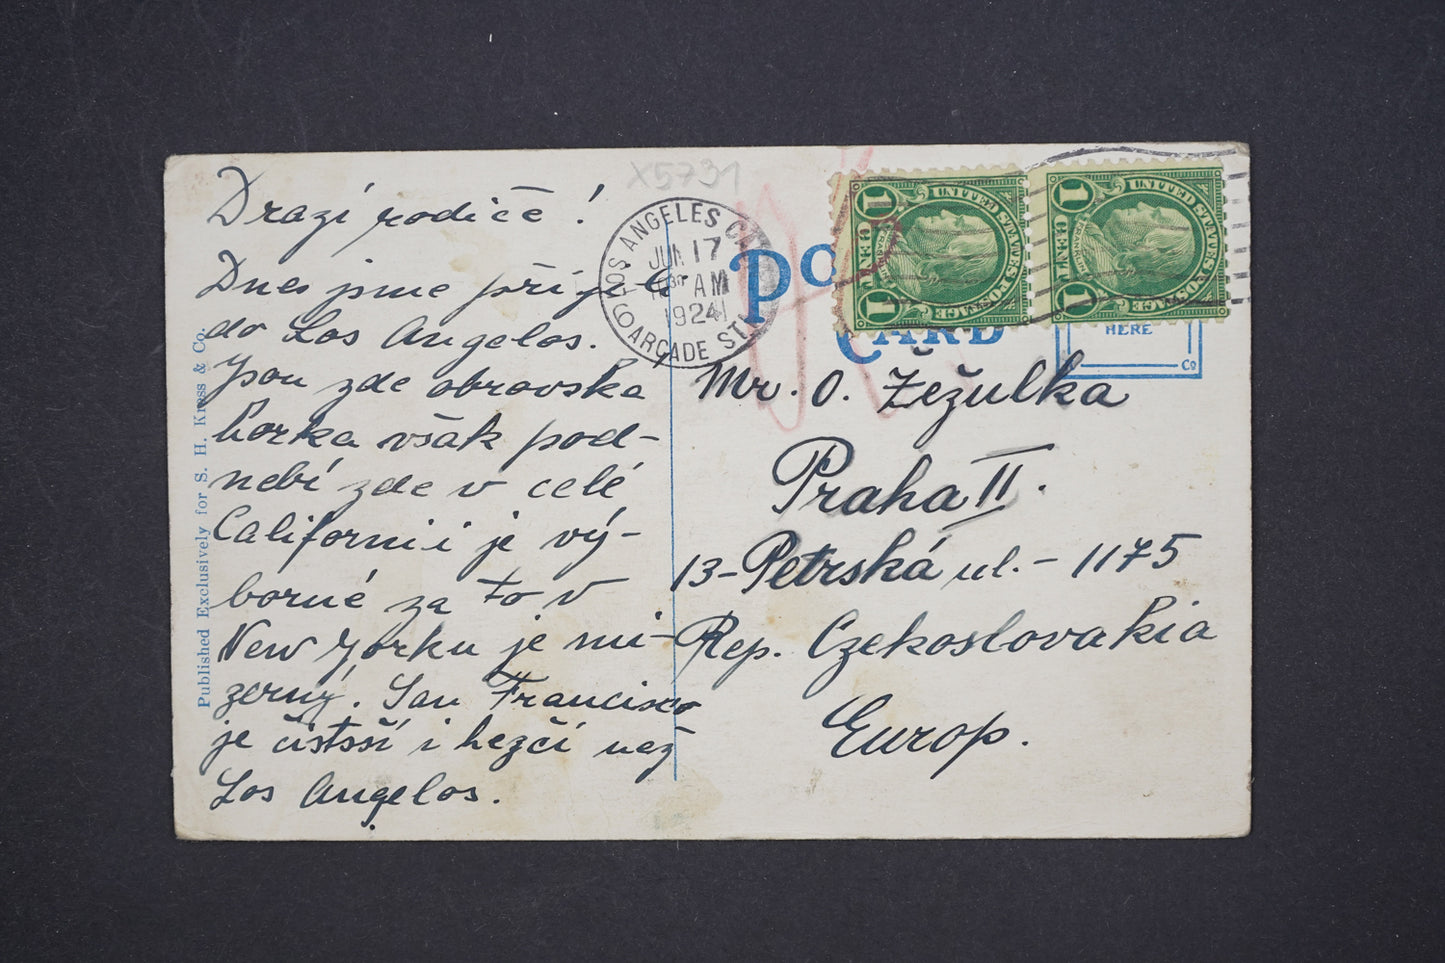 X5731
Drazí rodiče!
Dnes jsme přijeli
do Los Angelos.
Jsou zde obrovska
horka však pod-
nebí zde v celé
Californii je vý-
borné za to v
New Yorku je mi-
zerný. San Francisco
je čistsší i hezčí než
Los Angelos.
Published Exclusively for S. H. Kress & Co.
LOS ANGELES
JUN 17
AM
1924
ARCADE STA.
6
PO
CARD
UNITED STATES POSTAGE
1 CENT 1
FRANKLIN
UNITED STATES POSTAGE
1 CENT 1
FRANKLIN
HERE
Co
Mr. O. Žežulka
Praha II.
13-Petrská ul. - 1175
Rep. Czekoslovakia
Europ.